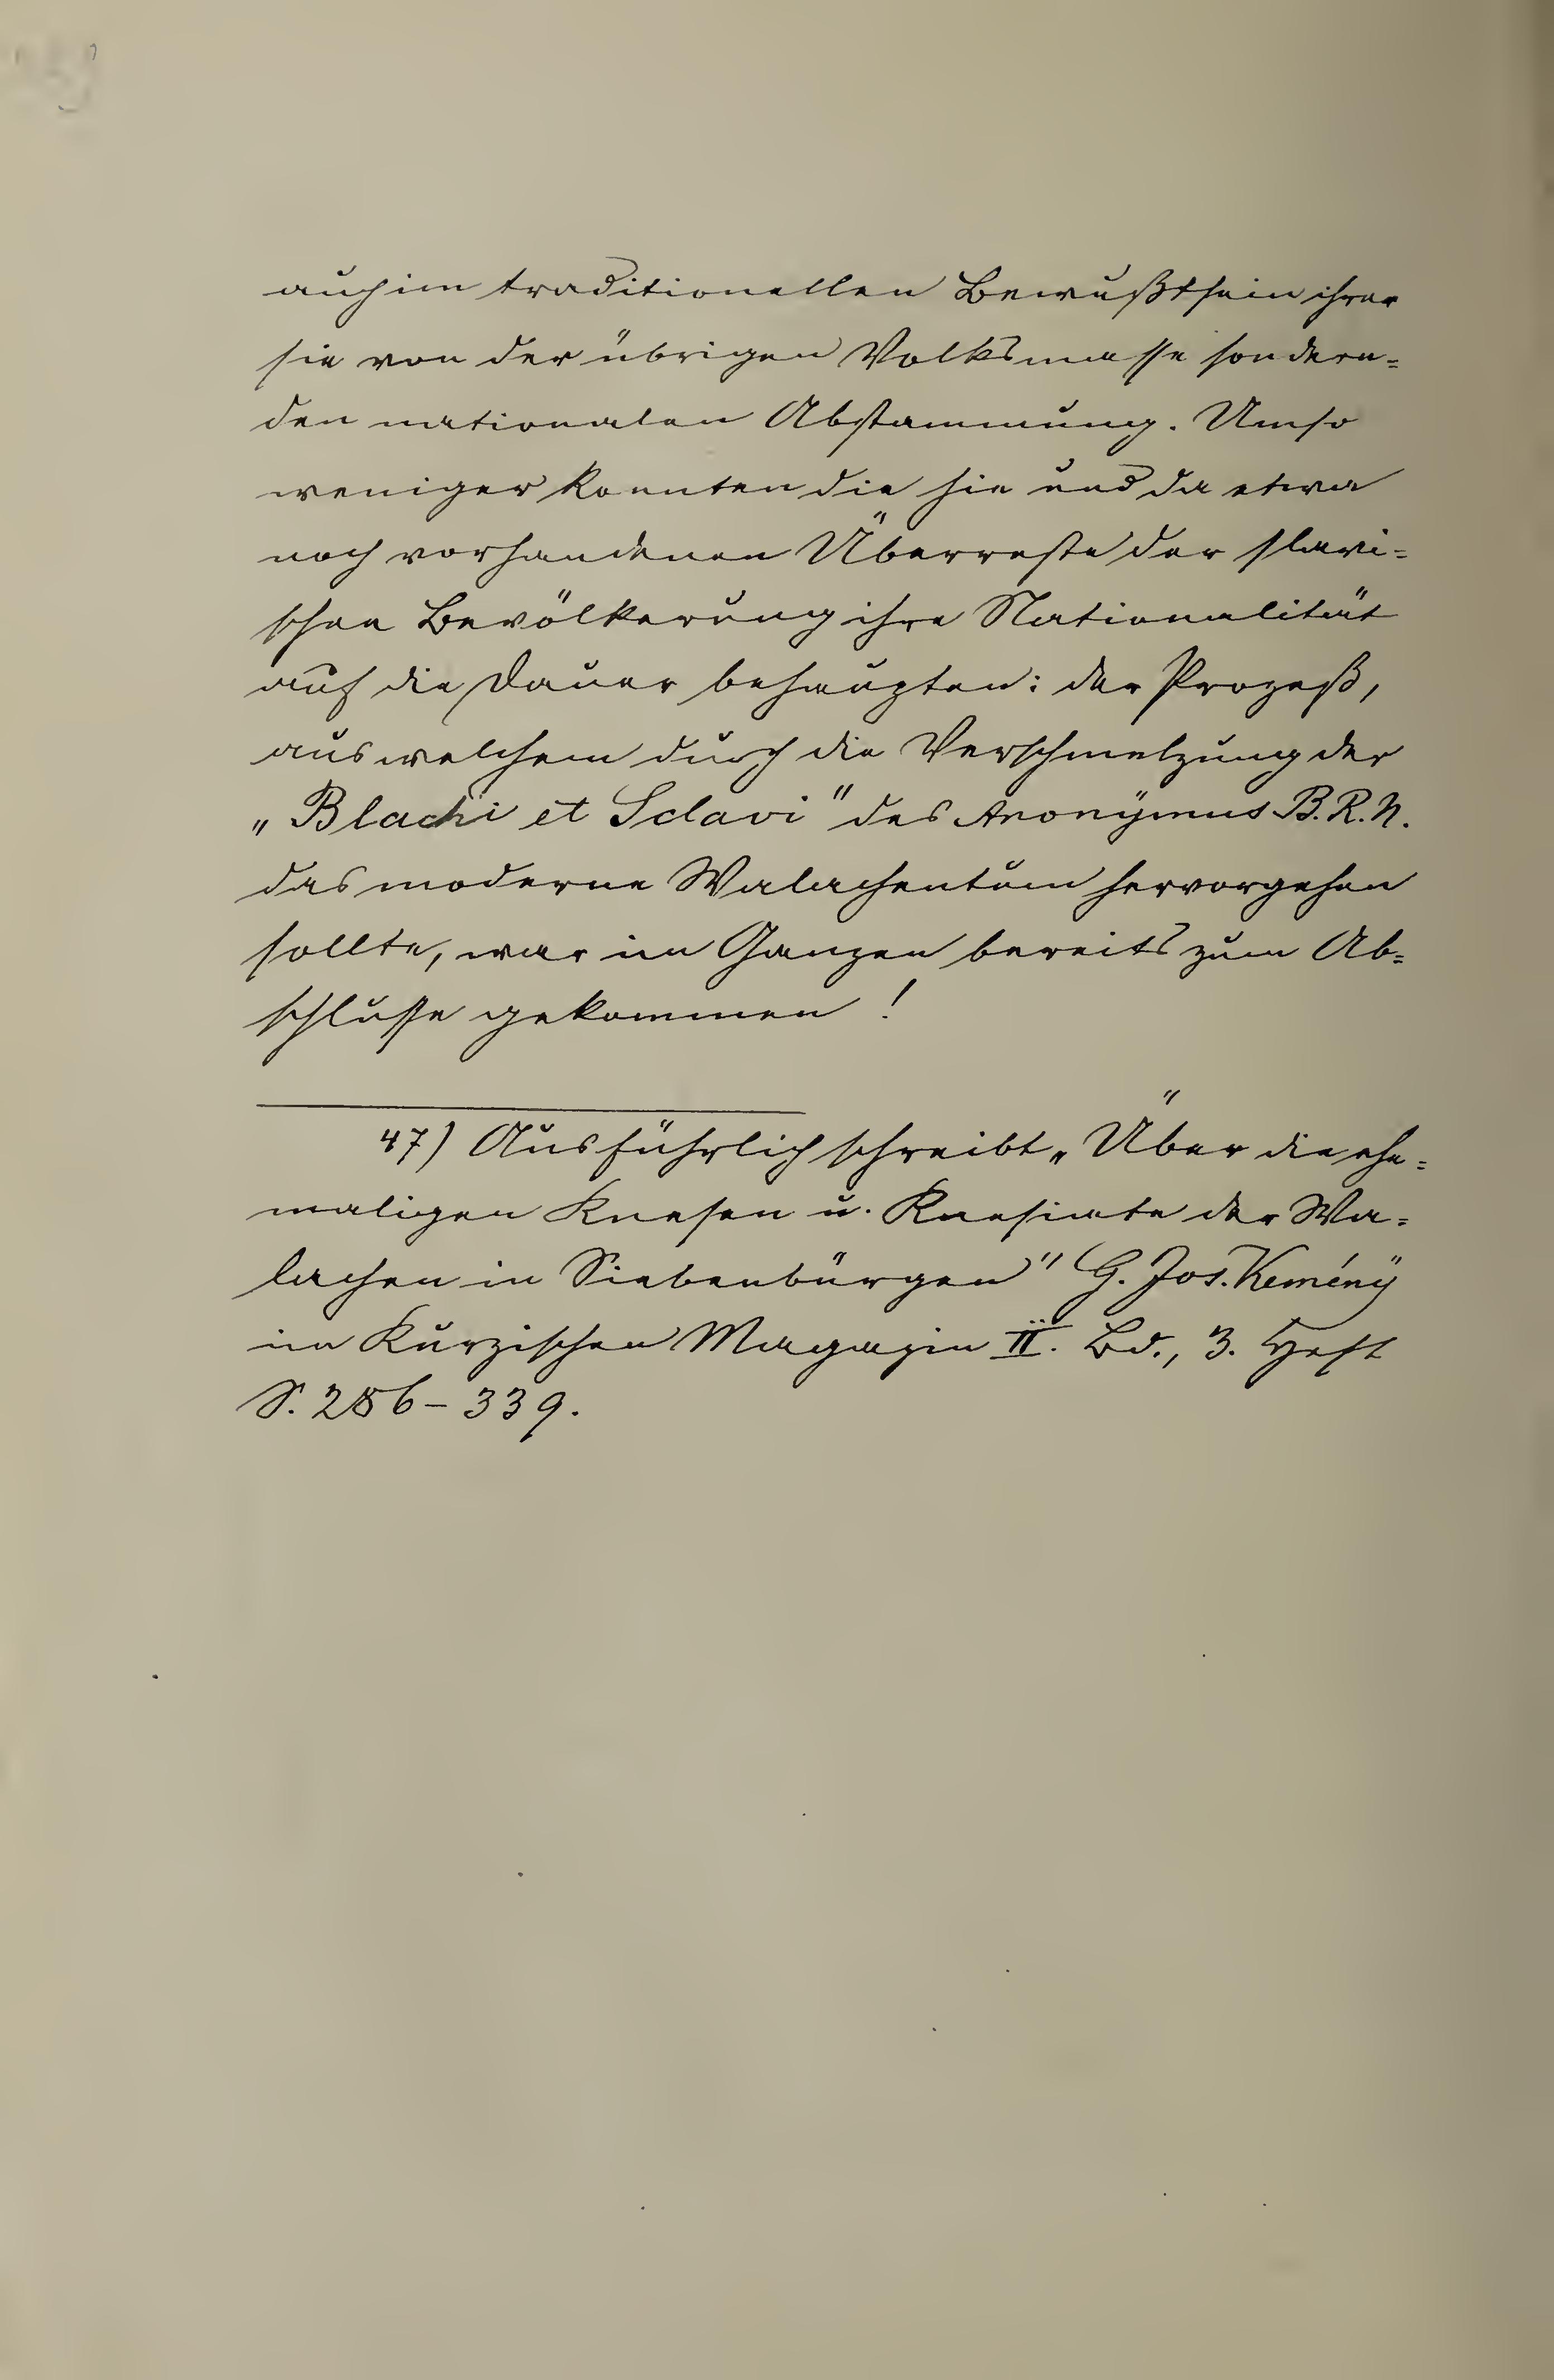 auch im traditionellen Bewußtsein ihrer
sie von der übrigen Volksmasse sondern=
den nationalen Abstammung. Umso
weniger konnten die hie und da etwa
noch vorhandenen Überreste der slavi=
schen Bevölkerung ihre Nationalität
auf die Dauer behaupten: der Prozeß,
aus welchem durch die Verschmelzung der
„Blachi et Sclavi" des Anonÿmus B. R. N.
das moderne Walachentum hervorgehen
sollte, war im Ganzen bereits zum Ab=
schlusse gekommen!
47) Ausführlich schreibt „Über die ehe=
maligen Knesen u. Knesiate der Wa=
lachen in Siebenbürgen" G. Jos. Kemény
im Kurzischen Magazin II. Bd., 3. Heft
S. 286–339.